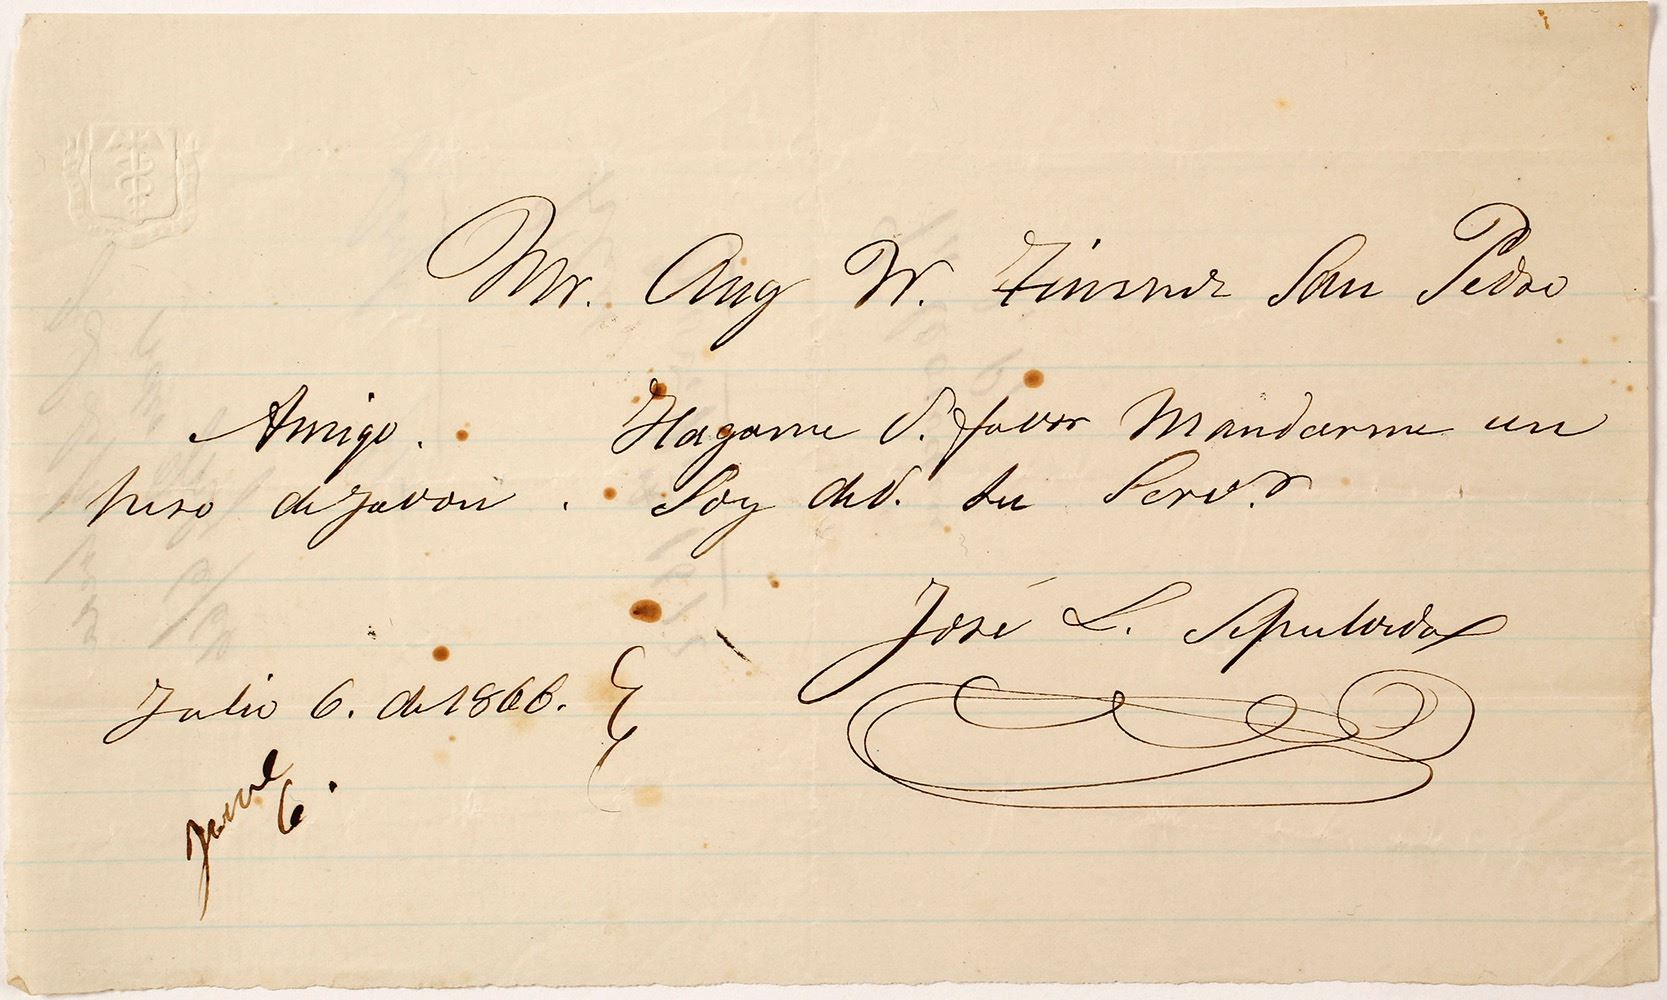 Mr. Aug W. Timmer San Pedro
Amigo. Hagame V. favor Mandarme un
peso de javon. Soy de V. su Serv.r
José L. Sepulveda
Julio 6. de 1866.
June
6.